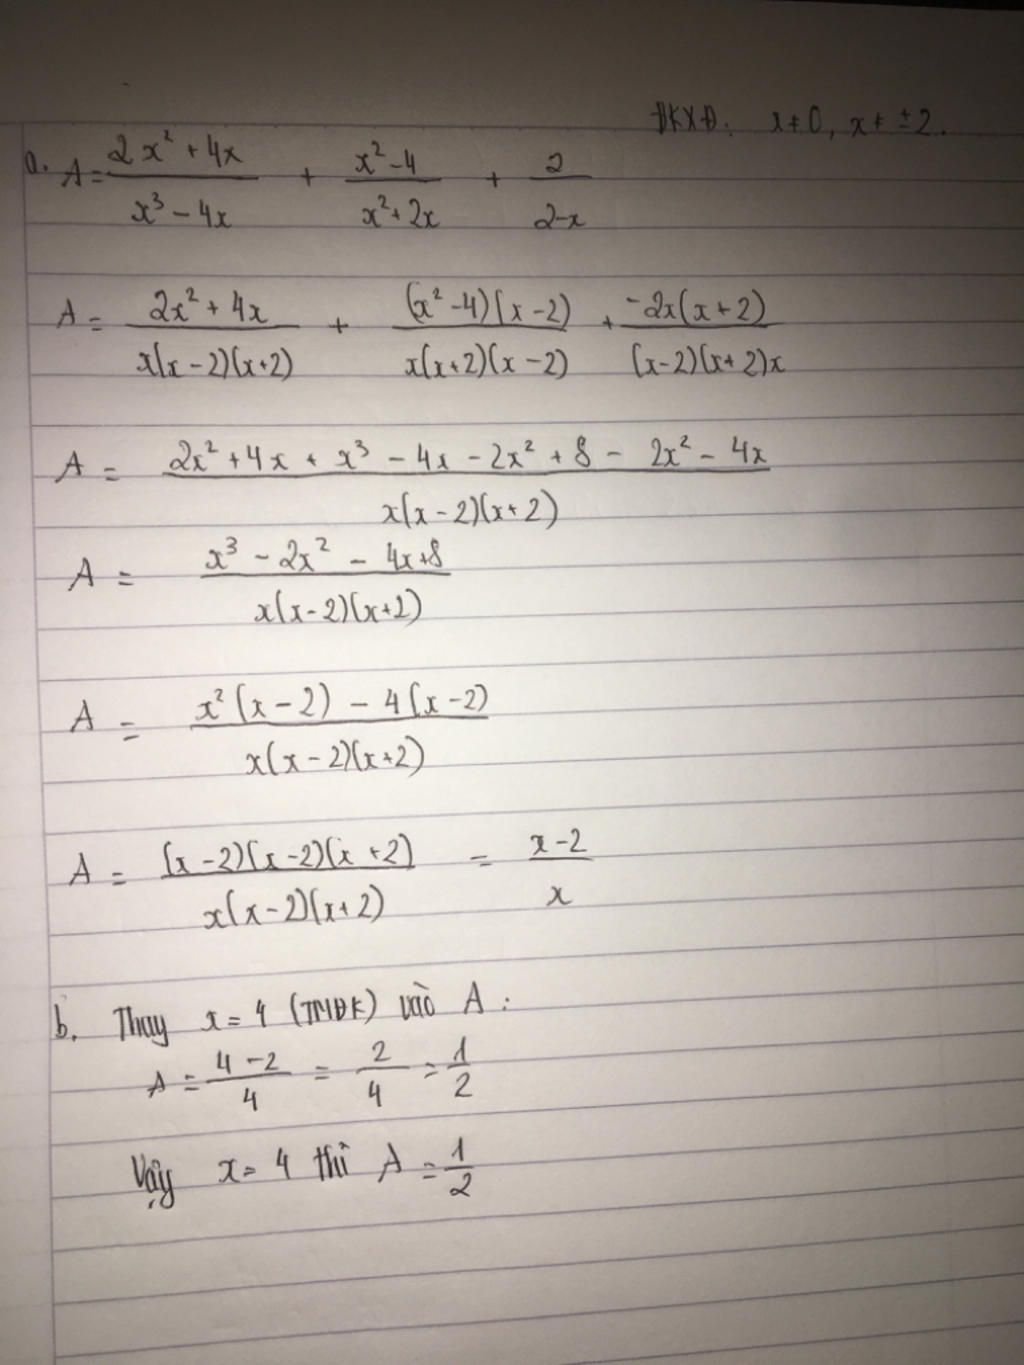 ĐKXĐ: x≠0, x≠ ±2.
a. A = (2x² + 4x)/(x³ - 4x) + (x² - 4)/(x² + 2x) + 2/(2-x)
A = (2x² + 4x)/(x(x-2)(x+2)) + ((x² - 4)(x-2))/(x(x+2)(x-2)) + (-2x(x+2))/((x-2)(x+2)x)
A = (2x² + 4x + x³ - 4x - 2x² + 8 - 2x² - 4x)/(x(x-2)(x+2))
A = (x³ - 2x² - 4x + 8)/(x(x-2)(x+2))
A = (x²(x-2) - 4(x-2))/(x(x-2)(x+2))
A = ((x-2)(x-2)(x+2))/(x(x-2)(x+2)) = (x-2)/x
b. Thay x = 4 (TMĐK) vào A :
A = (4-2)/4 = 2/4 = 1/2
Vậy x = 4 thì A = 1/2